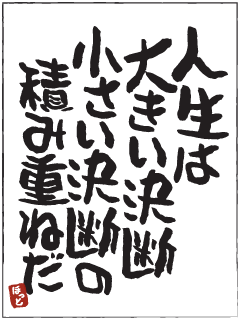 人生は
大きい決断
小さい決断の
積み重ねだ
ほっと